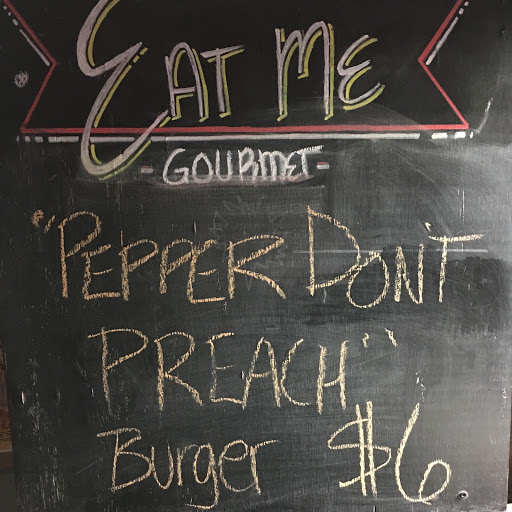 EAT ME
-GOURMET-
"PEPPER DON'T
PREACH"
Burger $6